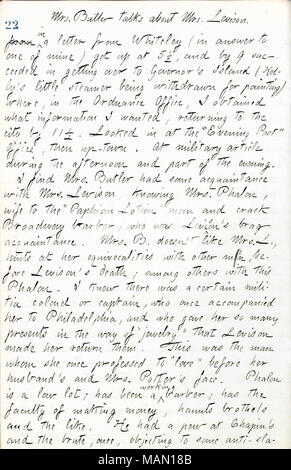 Mrs. Butler talks about Mrs. Levison.
22
in
from a letter from Whiteley (in answer to
one of mine) got up at 5 1/2, and by 9 suc-
ceeded in getting over to Governor's Island
's little steamer being withdrawn for painting)
where, in the Ordnance Office, I obtained
what information I wanted, returning to the
city by 11 1/2. Looked in at the "Evening Post"
Office, then up-town. At military article
during the afternoon and part of the evening.
I find Mrs. Butler had some acquaintance
with Mrs. Levison, knowing Mrs. Phalon,
wife to the "Paphian Lotion" man and crack
Broadway barber, who was Levison's brag
acquaintance. Mrs. B. doesn't like Mrs. L.,
hints at her equivocalities with other men, be-
fore Levison's death; among others with this
Phalon. I knew there was a certain mili-
tia colonel or captain, who once accompanied
her to Philadelphia, and who gave her so many
presents in the way of "jewelry" that Levison
made her return them. This was the man
whom she once professed to "love" before her
husband's and Mrs. Potter's face. Phalon
working
is a low lot; has been a barber; has the
faculty of making money, haunts brothels
and the like. He had a pew at Chapin's
and the brute, once, objecting to some anti-sla-
alamy
Image ID: MAN18B
www.alamy.com